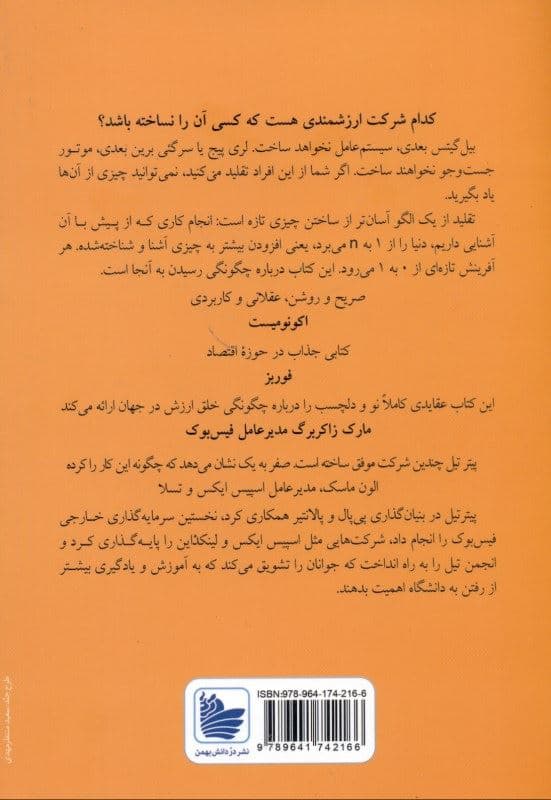 کدام شرکت ارزشمندی هست که کسی آن را نساخته باشد؟
بیل‌گیتس بعدی، سیستم‌عامل نخواهد ساخت. لری پیج یا سرگئی برین بعدی، موتور
جست‌وجو نخواهند ساخت. اگر شما از این افراد تقلید می‌کنید، نمی‌توانید چیزی از آن‌ها
یاد بگیرید.
تقلید از یک الگو آسان‌تر از ساختن چیزی تازه است: انجام کاری که از پیش با آن
آشنایی داریم، دنیا را از ۱ به n می‌برد، یعنی افزودن بیشتر به چیزی آشنا و شناخته‌شده. هر
آفرینش تازه‌ای از ۰ به ۱ می‌رود. این کتاب درباره چگونگی رسیدن به آنجا است.
صریح و روشن، عقلانی و کاربردی
اکونومیست
کتابی جذاب در حوزهٔ اقتصاد
فوربز
این کتاب عقایدی کاملاً نو و دلچسب را درباره چگونگی خلق ارزش در جهان ارائه می‌کند
مارک زاکربرگ مدیرعامل فیس‌بوک
پیتر تیل چندین شرکت موفق ساخته است. صفر به یک نشان می‌دهد که چگونه این کار را کرده
الون ماسک، مدیرعامل اسپیس ایکس و تسلا
پیتر تیل در بنیان‌گذاری پی‌پال و پالانتیر همکاری کرد، نخستین سرمایه‌گذاری خارجی
فیس‌بوک را انجام داد، شرکت‌هایی مثل اسپیس ایکس و لینکداین را پایه‌گذاری کرد و
انجمن تیل را به راه انداخت که جوانان را تشویق می‌کند که به آموزش و یادگیری بیشتر
از رفتن به دانشگاه اهمیت بدهند.
ISBN:978-964-174-216-6
9 789641 742166
نشر در دانش بهمن
طرح جلد: سعید منتظرمهدی